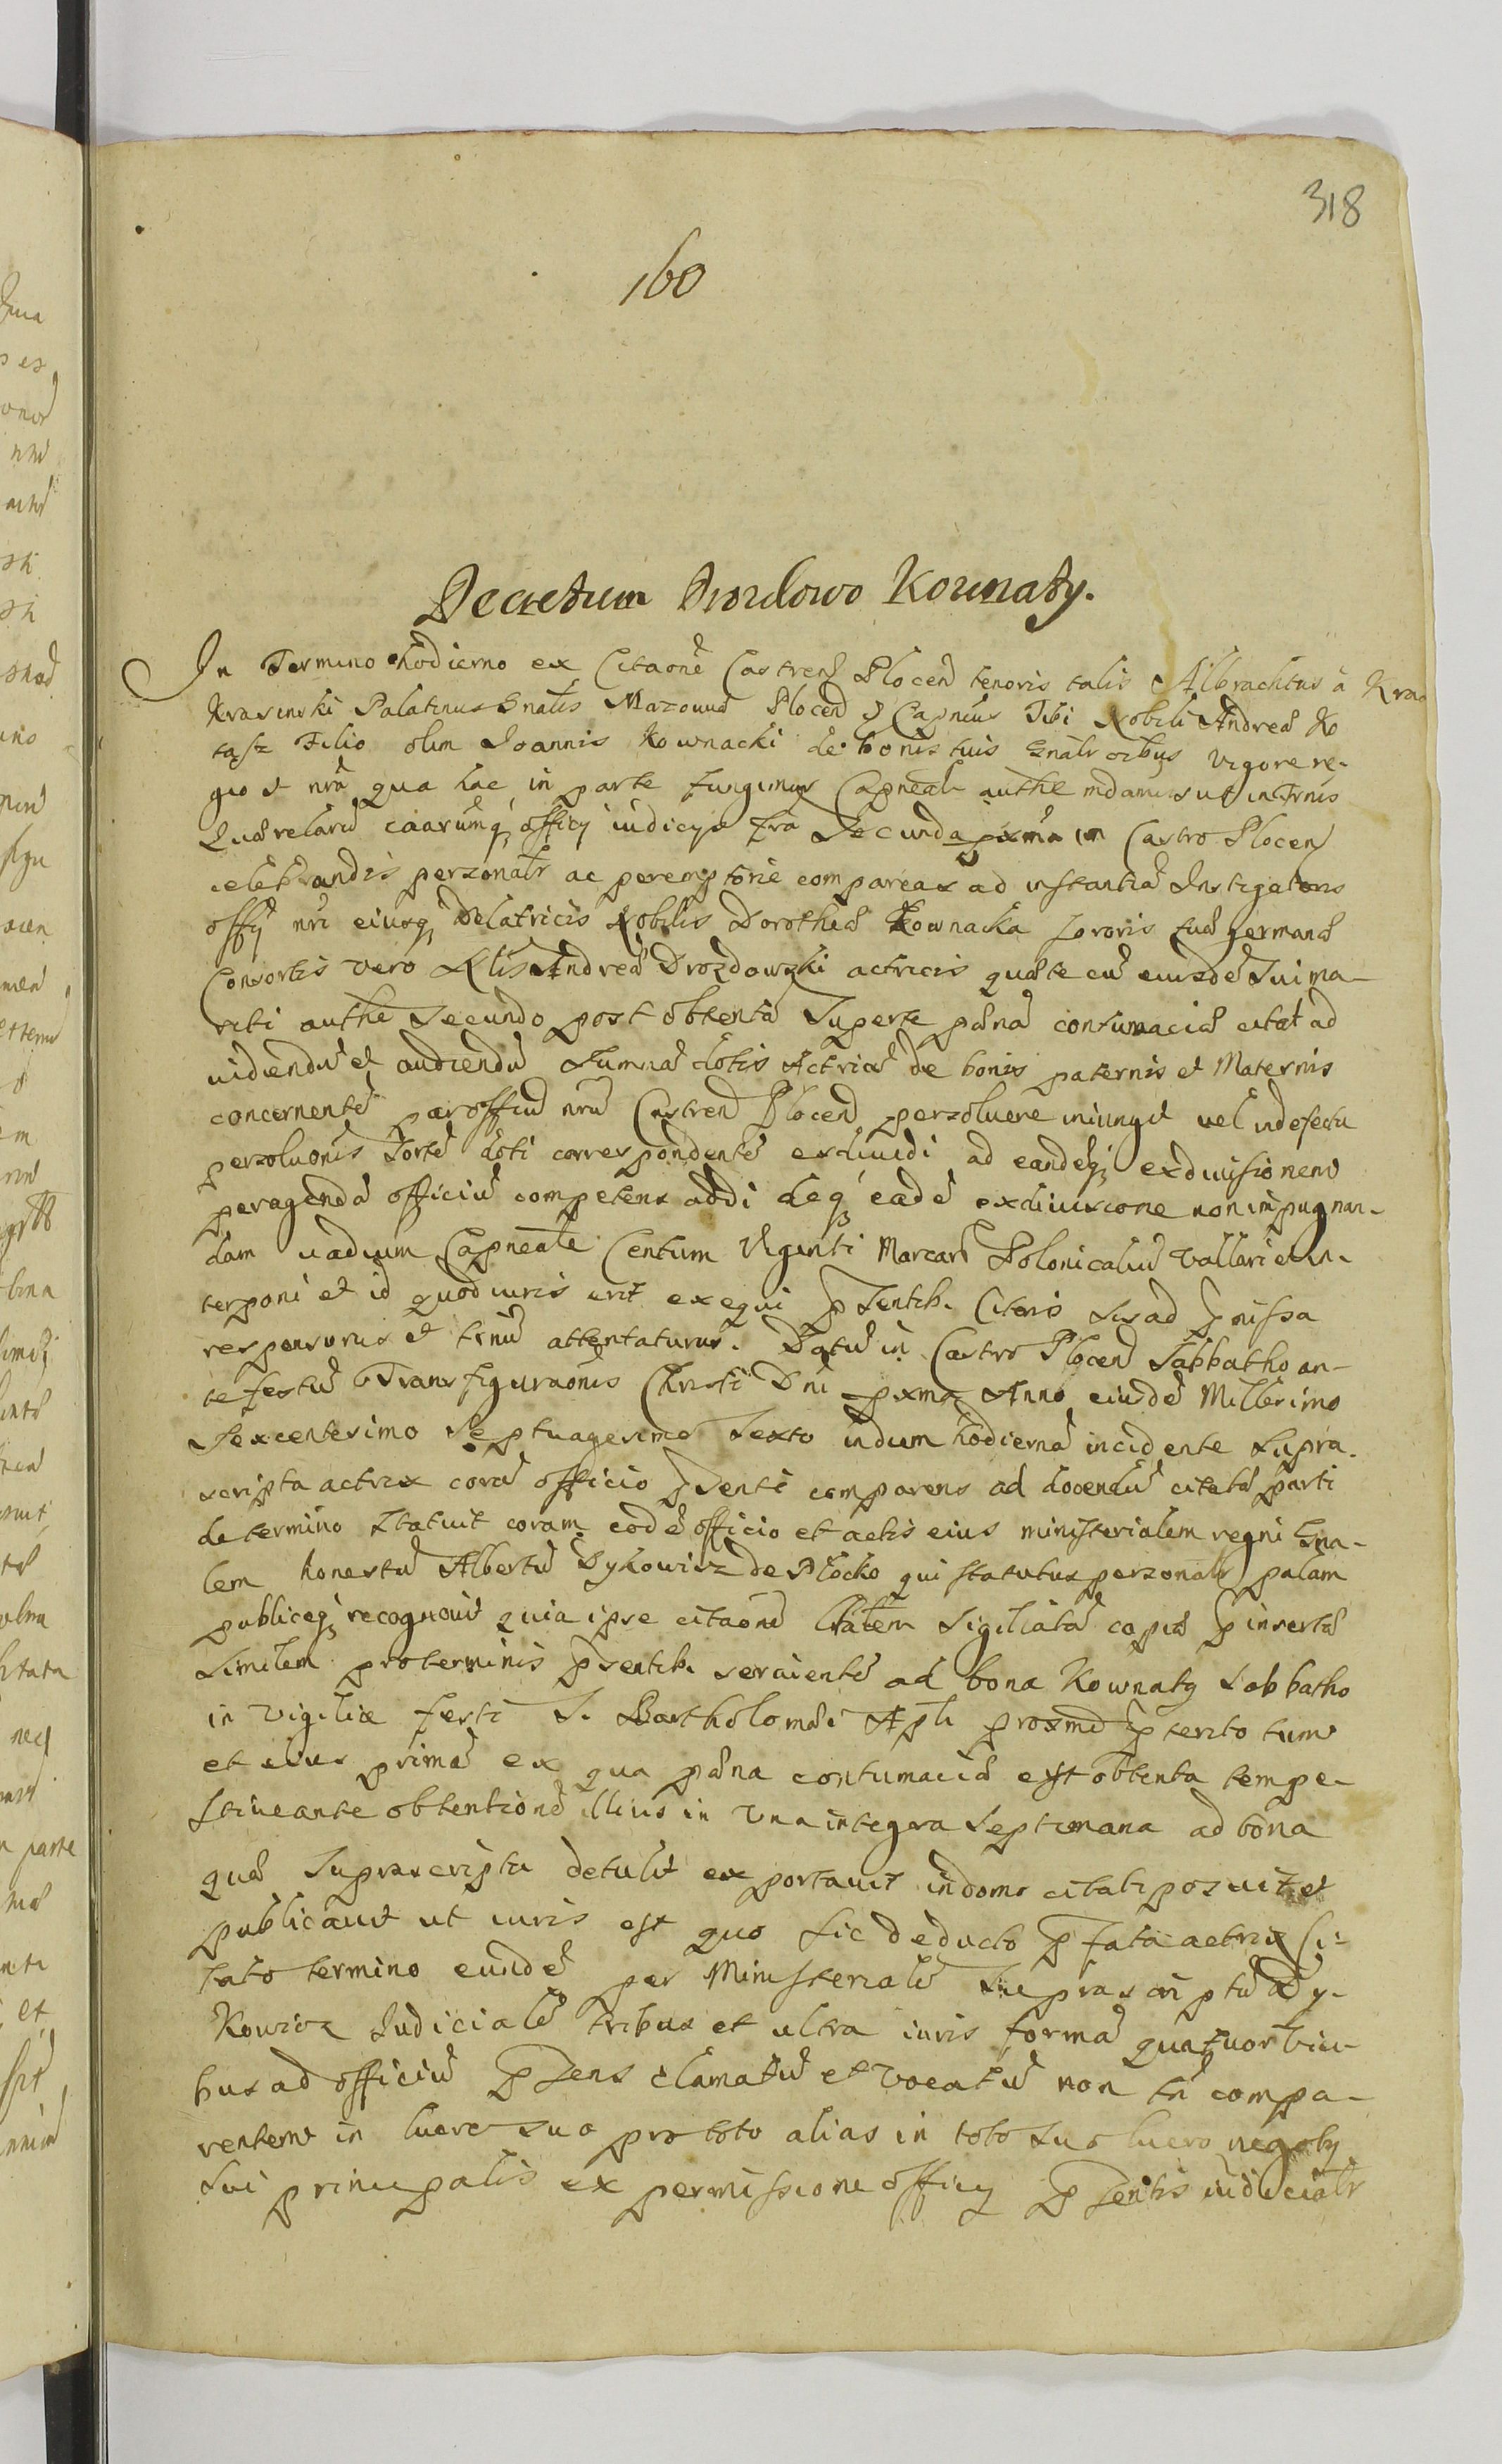 318
160
Decretum Drozdowo Kownaty.
In Termino hodierno ex Citaone Castren Plocen tenoris talis Albrachtus a Kras
Krasinski Palatinus Gnalis Mazoviae Plocen Capneus Tibi Nobili Andreae Ko
Filio olim Joannis Kownacki de bonis tuis Gnalr oibus vigore re-
gio et nra qua hac in parte fungimur Capneali authe mdamus ut in Trnis
Quaerelaru caarumq officy iudicys fra Secunda pxma in Castro Plocen
celebrandis personalr ac peremptorie compareas ad instantia Instigatoris
offy nri eiusq Delatricis Nobilis Dorotheae Kownacka sororis tuae germanae
Consortis vero Nlis Andreae Drozdowski actricis quae te cu eiusde sui ma-
riti authe secundo post obtenta super te paena contumaciae citat ad
uidendu et audiendu summa dotis Actricae de bonis paternis et Maternis
concernente par offiu nru Castren Plocen persoluere iniungi uel in defectu
persoluonis sorte doti correspondente exdiuidi ad eandeq exdiuisionem
peragenda officiu competens addi deq eade exdiuisione non impugnan-
dam uadium Capneale Centum Viginti Marcaru Polonicaliu vallari et in-
terponi et id quod iuris erit exequi pntib. Citeris sis ad pmissa
responsurus et trnu attentaturus. Datu in Castro Plocen Sabbatho an-
te festu Transfiguraonis Christi Dni pxma Anno eiusde Millesimo
Sexcentesimo Septuagesimo Sexto indum hodierna incidente supra-
scripta actrix cora officio psenti comparens ad docendu citatae parti
de termino statuit coram eode officio et actis eius ministerialem regni Gna-
lem honestu Albertu Dykowicz de Plocko qui statutus personalr palam
publiceq recognouit quia ipse citaone lralem sigillata copiae pinsertae
similem pro terminis psentib. seruiente ad bona Kownaty Sabbatho
in vigilia festi S. Bartholomaei Apli proxme pterito tum
et eius prima ex qua paena contumaciae est obtenta tempe-
stiue ante obtentione illius in Vna integra septimana ad bona
quae suprascripta detulit exportauit in domo citati posuit et
publicauit ut iuris est quo sic deducto pfata actrix Ci-
tato termino eunde per Ministeriale suprascriptu Dy-
kowicz Iudiciale tribus et ultra iuris forma quatuor vici-
bus ad officiu psens clamatu et vocatu non tn compa-
rentem in lucro suo pro toto alias in toto suo lucro negoty
sui principalis ex permissione officy psentis iudicialr